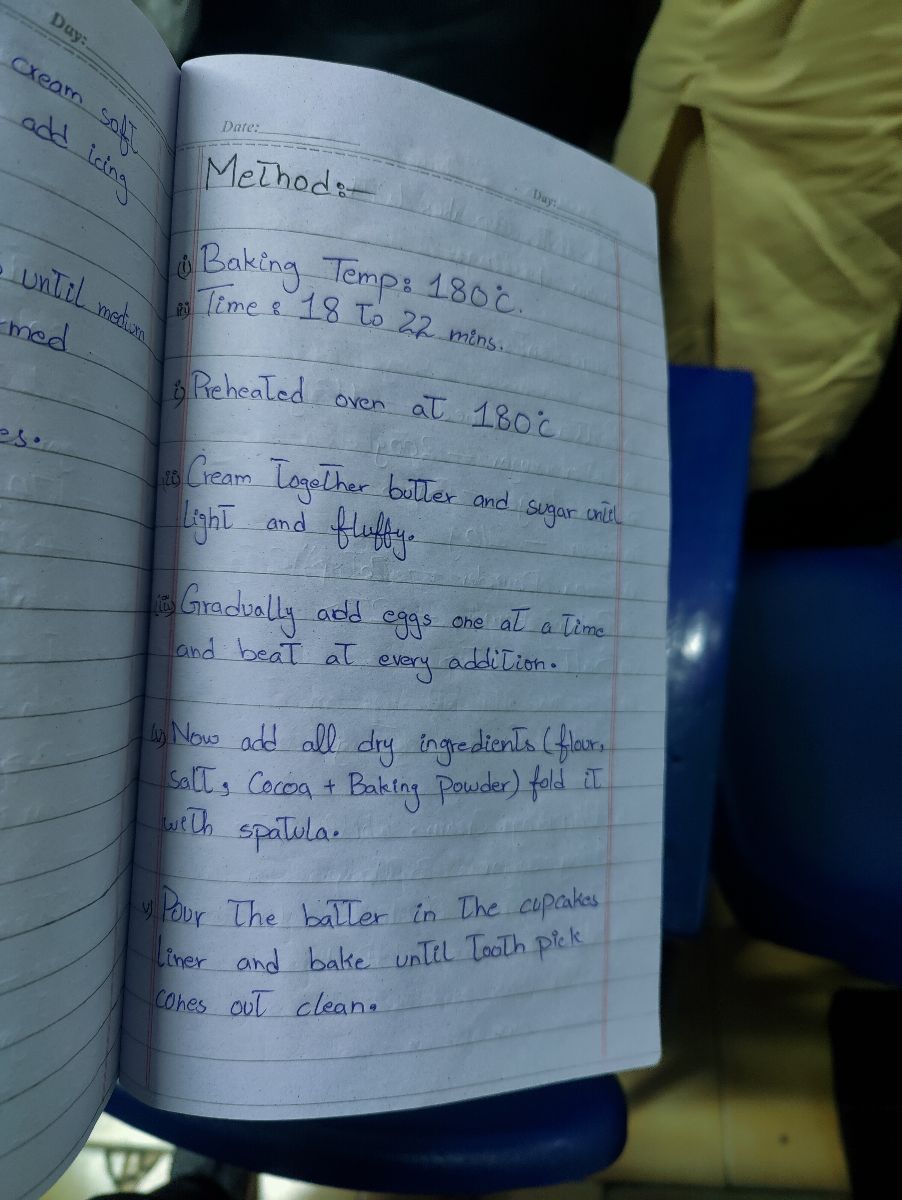 Day:
cream soft
add icing
until medium
es.
Date:
Day:
Method:-
i) Baking Temp: 180°c.
ii) Time : 18 to 22 mins.
i) Preheated oven at 180°c
ii) Cream together butter and sugar until
light and fluffy.
iii) Gradually add eggs one at a time
and beat at every addition.
iv) Now add all dry ingredients (flour,
salt, Cocoa + Baking Powder) fold it
with spatula.
v) Pour the batter in the cupcakes
liner and bake until tooth pick
cones out clean.